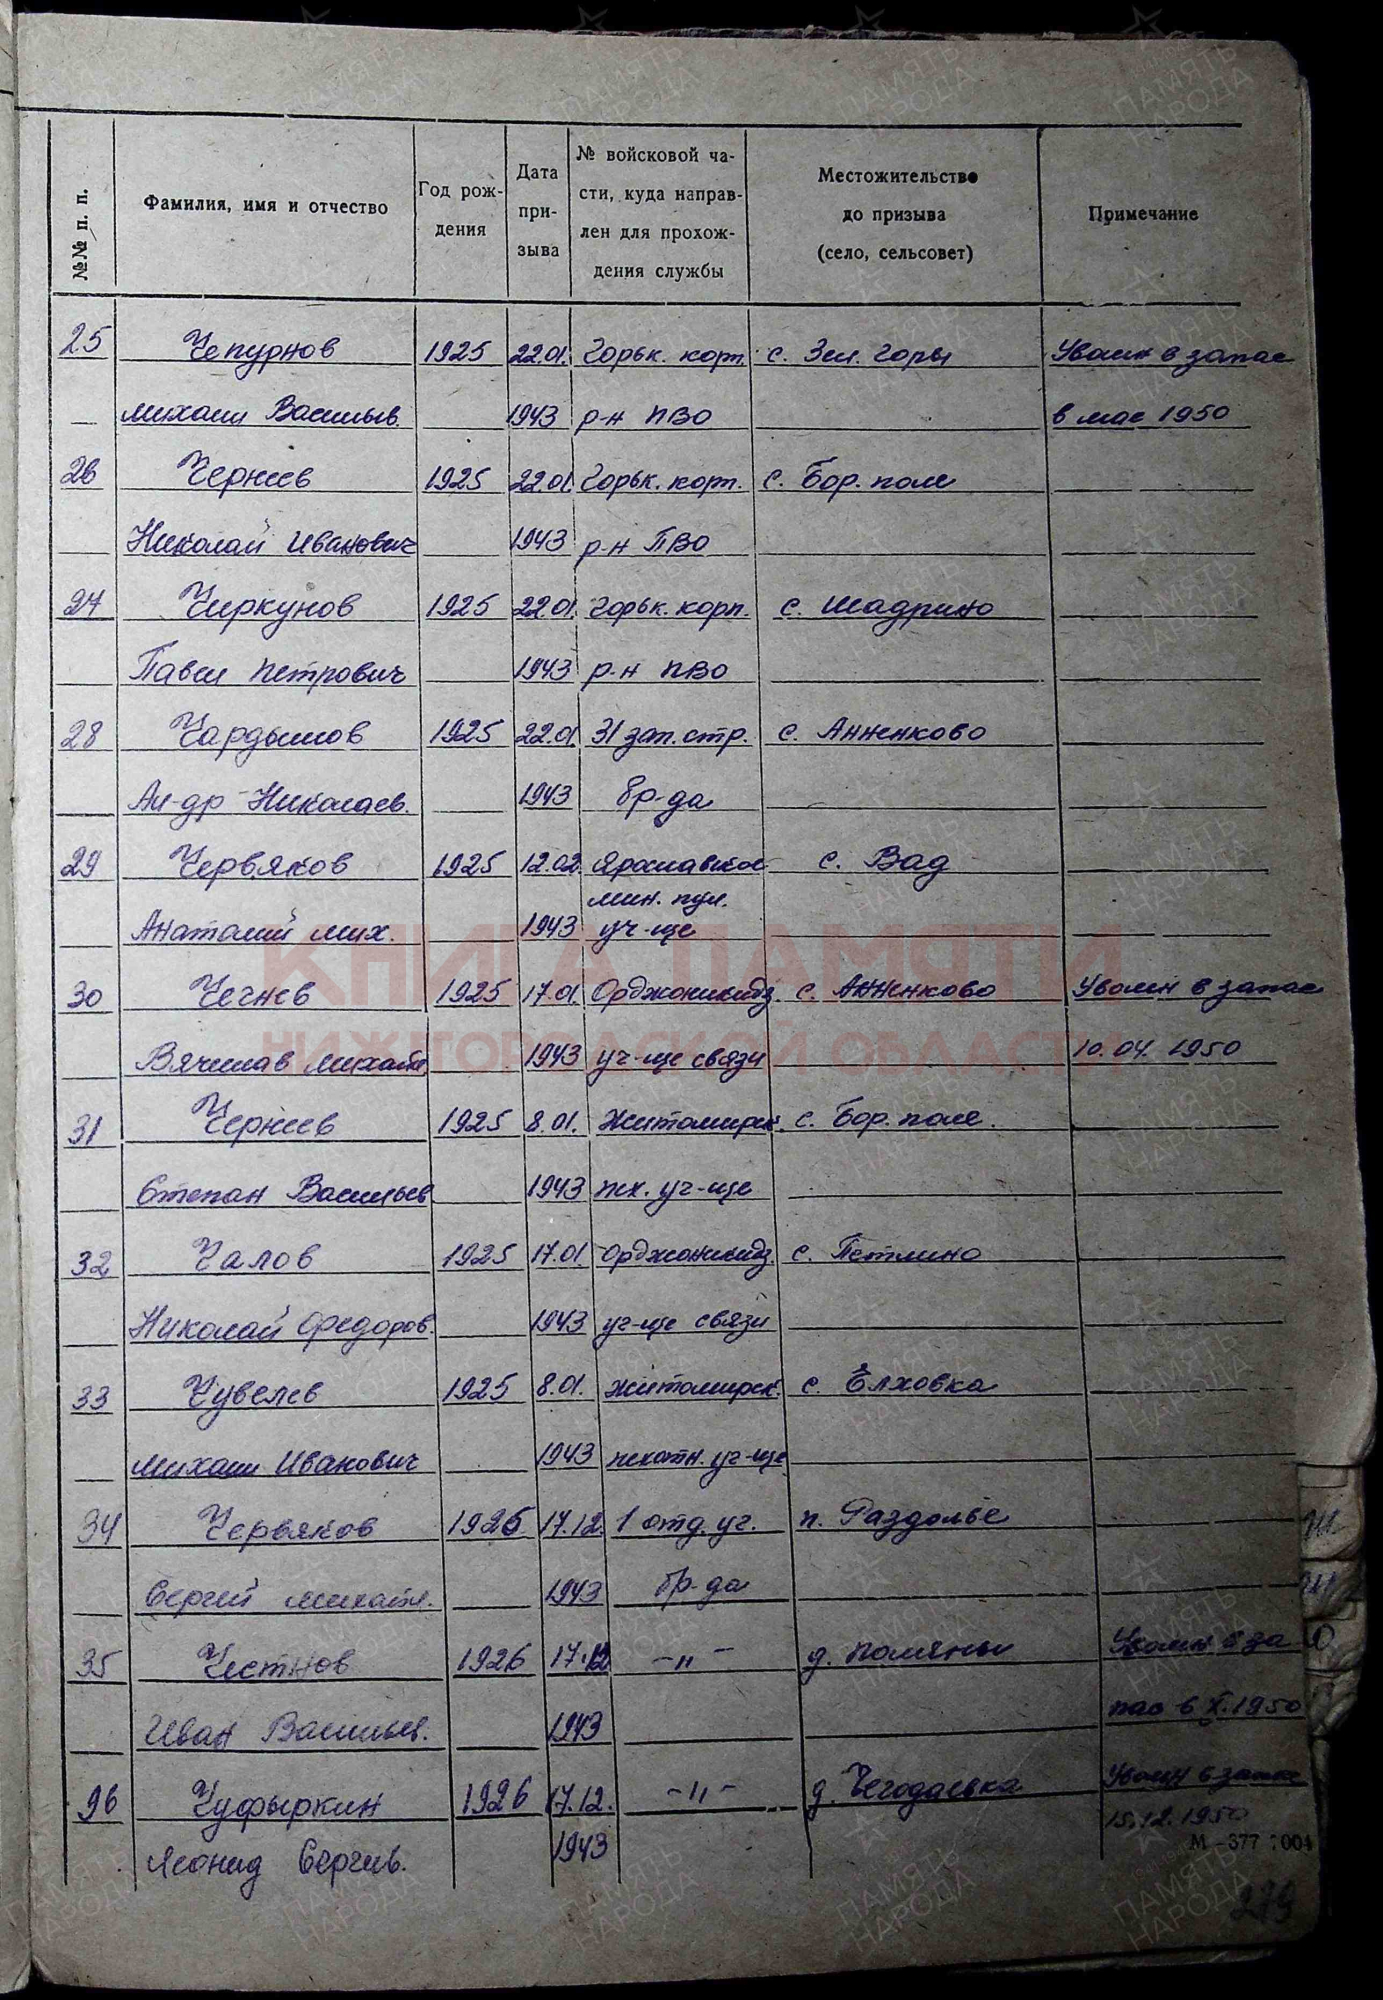 №№ п. п.
Фамилия, имя и отчество
Год рож-
дения
Дата
при-
зыва
№ войсковой ча-
сти, куда направ-
лен для прохож-
дения службы
Местожительство
до призыва
(село, сельсовет)
Примечание
25 Чепурнов 1925 22.01. Горьк. корп. с. Зел. Горы Уволен в запас
Михаил Васильев. 1943 р-н ПВО в мае 1950
26 Чернеев 1925 22.01 Горьк. корп. с. Бор. поле
Николай Иванович 1943 р-н ПВО
27 Чиркунов 1925 22.01. Горьк. корп. с. Шадрино
Павел Петрович 1943 р-н ПВО
28 Чардымов 1925 22.01. 31 зап. стр. с. Анненково
Ал-др Николаев. 1943 бр-да
29 Червяков 1925 12.02. Ярославское с. Вад
мин. пул.
Анатолий Мих. 1943 уч-ще
30 Чегнев 1925 17.01 Орджоникидз. с. Анненково Уволен в запас
Вячеслав Михайл. 1943 уч-ще связи 10.04. 1950
31 Чернеев 1925 8.01. Житомирск. с. Бор. поле.
Степан Васильев 1943 пех. уч-ще
32 Чалов 1925 17.01 Орджоникидз. с. Петлино
Николай Федоров. 1943 уч-ще связи
33 Чувелев 1925 8.01. Житомирск. с. Ёлховка
Михаил Иванович 1943 пехотн. уч-ще
34 Червяков 1926 17.12. 1 отд. уч. п. Раздолье
Сергей Михайл. 1943 бр-да
35 Честнов 1926 17.12 -"- д. Поляны Уволен в за
Иван Васильев. 1943 пас в X.1950
36 Чуфыркин 1926 17.12. -"- д. Чегодаевка Уволен в запас
15.12.1950
Леонид Сергеев. 1943
М—377 :004
279
КНИГА ПАМЯТИ
НИЖЕГОРОДСКОЙ ОБЛАСТИ
ПАМЯТЬ
НАРОДА